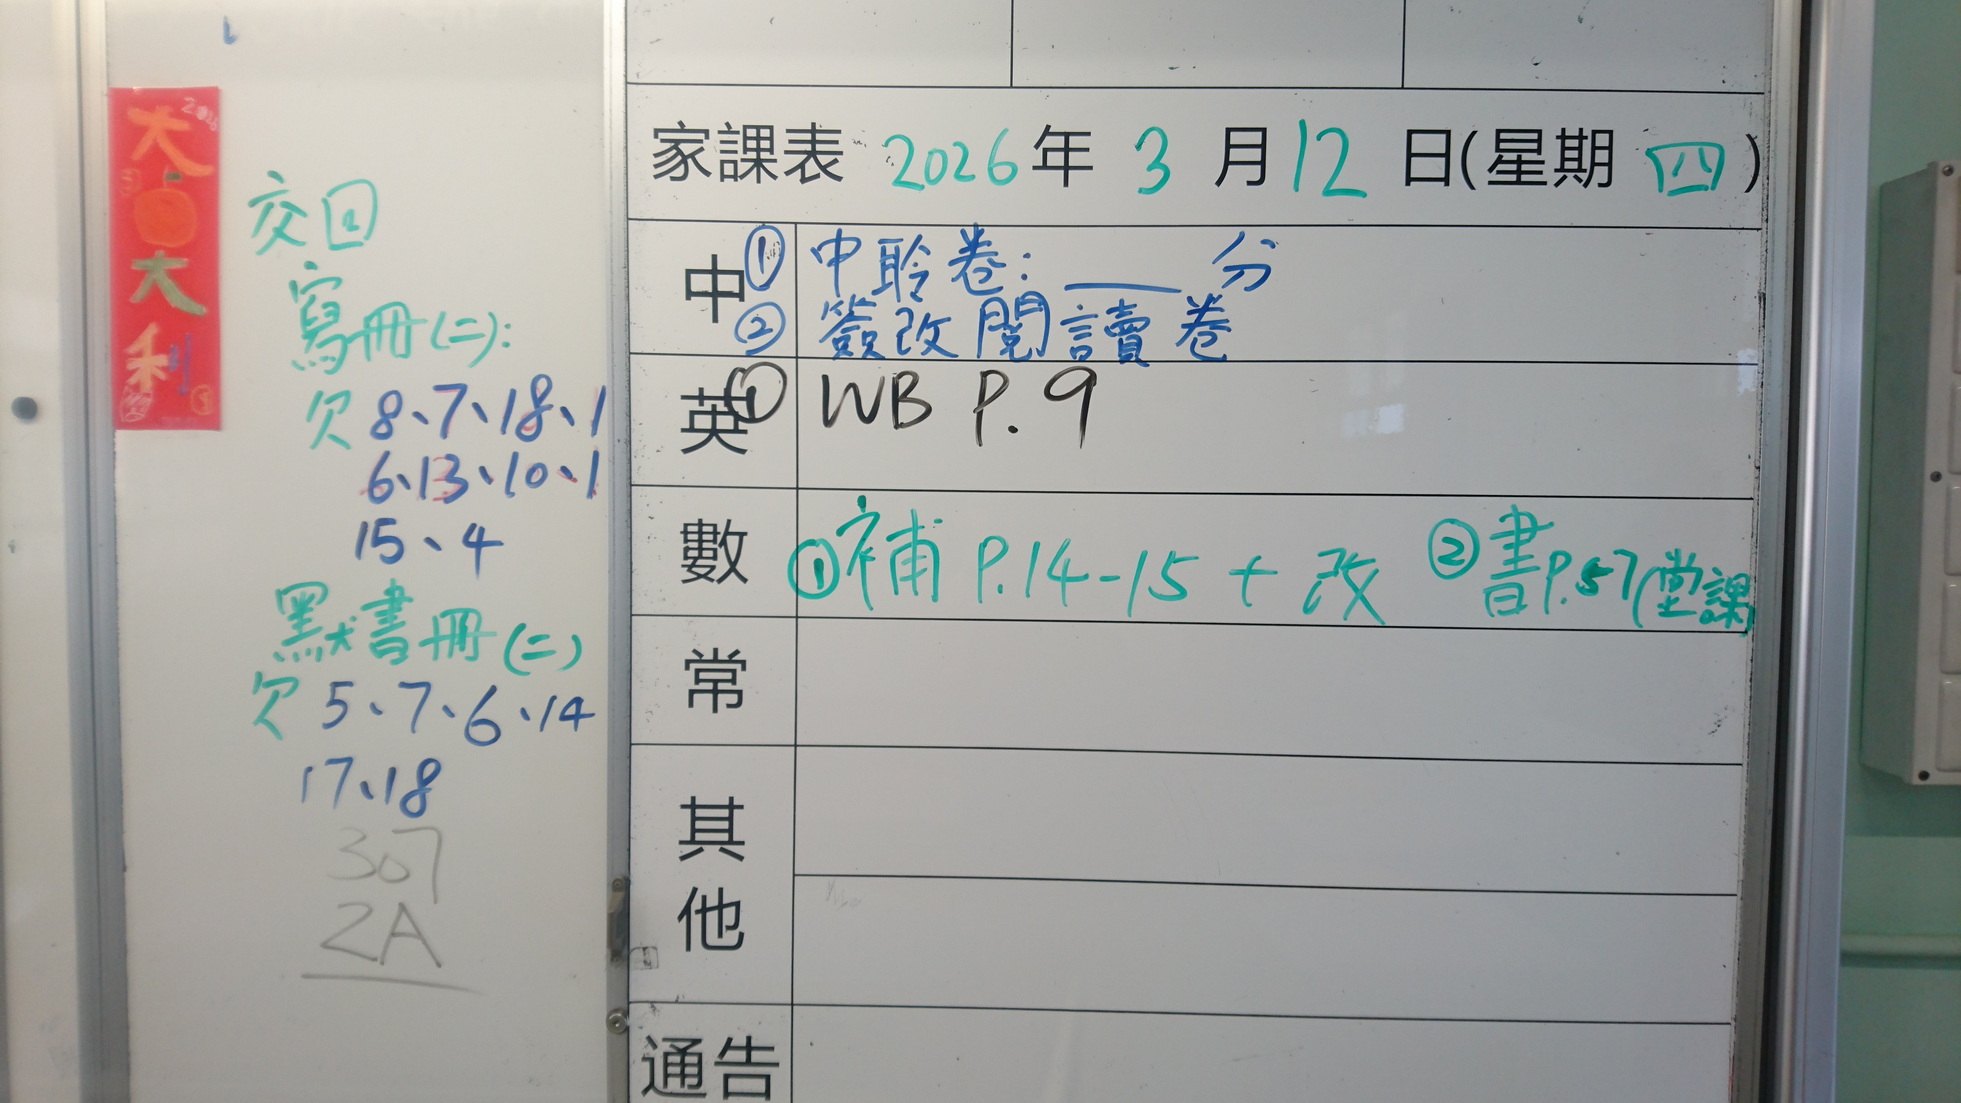 大吉大利
2026
交回
寫冊(二):
欠 8、7、18、1
6、13、10、1
15、4
默書冊(二)
欠 5、7、6、14
17、18
307
2A
家課表 2026年 3月12日(星期四)
中 ① 中聆卷: ___ 分
② 簽改閱讀卷
英 ① WB P.9
數 ①補 P.14-15 + 改 ②書P.57(堂課)
常
其他
通告